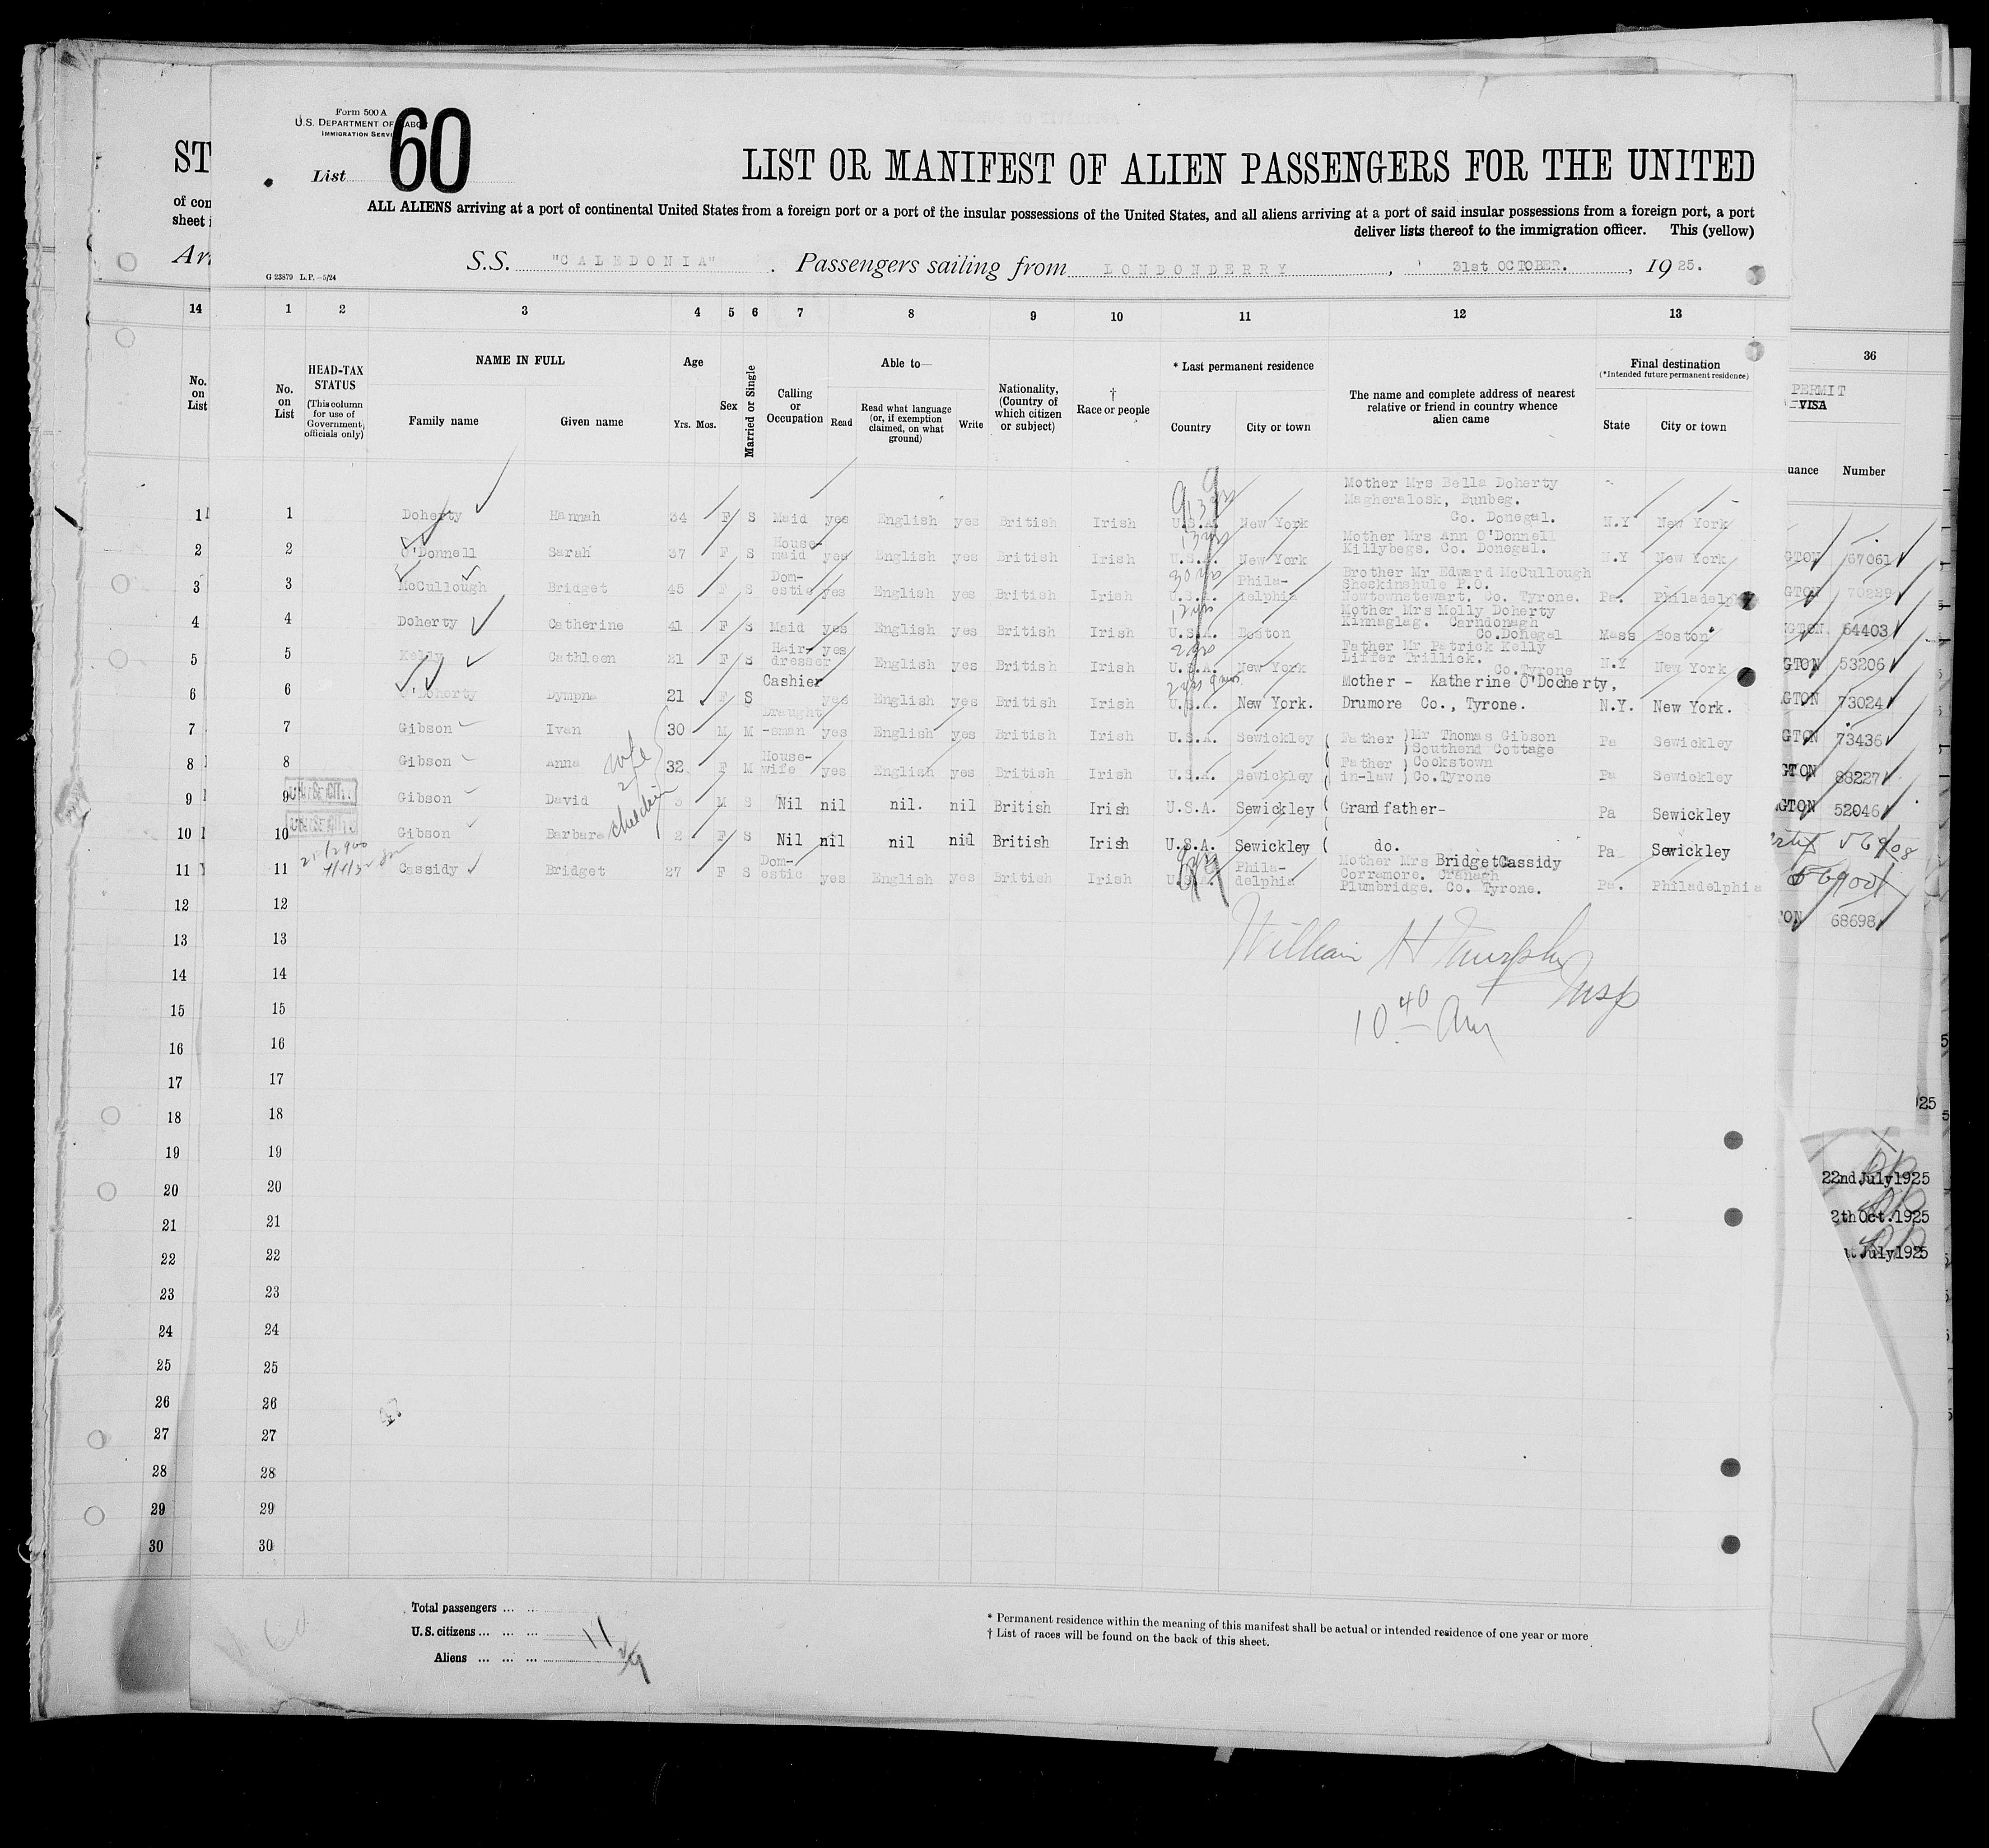 Form 500 A
U.S. DEPARTMENT OF LABOR
IMMIGRATION SERVI
List 60
LIST OR MANIFEST OF ALIEN PASSENGERS FOR THE UNITED
ST
of con
sheet i
ALL ALIENS arriving at a port of continental United States from a foreign port or a port of the insular possessions of the United States, and all aliens arriving at a port of said insular possessions from a foreign port, a port
deliver lists thereof to the immigration officer. This (yellow)
Arr
S.S. "CALEDONIA". Passengers sailing from LONDONDERRY, 31st OCTOBER., 1925.
G 23879 L.P.—5/24
14 1 2 3 4 5 6 7 8 9 10 11 12 13 36
No. on List
No. on List
HEAD-TAX STATUS
(This column for use of Government officials only)
NAME IN FULL
Family name Given name
Age
Yrs. Mos.
Sex
Married or Single
Calling or Occupation
Able to—
Read
Read what language (or, if exemption claimed, on what ground)
Write
Nationality, (Country of which citizen or subject)
† Race or people
* Last permanent residence
Country City or town
The name and complete address of nearest relative or friend in country whence alien came
Final destination
(*Intended future permanent residence)
State City or town
PERMIT
VISA
uance Number
1 1 Doherty Hannah 34 F S Maid yes English yes British Irish U.S.A. New York Mother Mrs Bella Doherty Magheralosk, Bunbeg. Co. Donegal. N.Y New York
2 2 O'Donnell Sarah 37 F S House-maid yes English yes British Irish U.S.A. New York Mother Mrs Ann O'Donnell Killybegs. Co. Donegal. N.Y New York GTON 67061
3 3 McCullough Bridget 45 F S Dom-estic yes English yes British Irish U.S.A. Phila-delphia Brother Mr Edward McCullough Sheskinshule P.O. Newtownstewart. Co. Tyrone. Pa. Philadelp GTON 70229
4 4 Doherty Catherine 41 F S Maid yes English yes British Irish U.S.A. Boston Mother Mrs Molly Doherty Kinnaglag. Carndonagh Co.Donegal Mass Boston GTON 64403
5 5 Kelly Cathleen 21 F S Hair-dresser yes English yes British Irish U.S.A. New York Father Mr Patrick Kelly Liffer Trillick. Co.Tyrone N.Y New York GTON 53206
6 6 O'Doherty Dympna 21 F S Cashier yes English yes British Irish U.S.A. New York. Mother - Katherine O'Docherty, Drumore Co., Tyrone. N.Y. New York. GTON 73024
7 7 Gibson Ivan 30 M M Draught-sman yes English yes British Irish U.S.A. Sewickley Father Mr Thomas Gibson Southend Cottage Pa Sewickley GTON 73436
8 8 Gibson Anna wife 32 F M House-wife yes English yes British Irish U.S.A. Sewickley Father in-law Cookstown Co.Tyrone Pa Sewickley GTON 88227
9 9 Gibson David 2 children M S Nil nil nil. nil British Irish U.S.A. Sewickley Grandfather- Pa Sewickley GTON 52046
10 10 Gibson Barbara 2 F S Nil nil nil nil British Irish U.S.A. Sewickley do. Pa Sewickley
11 11 Cassidy Bridget 27 F S Dom-estic yes English yes British Irish U.S.A. Phila-delphia Mother Mrs Bridget Cassidy Corramore. Cranagh Plumbridge. Co. Tyrone. Pa. Philadelphia
TON 68698
12 12
13 13
William H Murphy
Insp
14 14
10 40 Am
15 15
16 16
17 17
18 18
19 19
20 20
21 21
22 22
23 23
24 24
25 25
26 26
27 27
28 28
29 29
30 30
25
22nd July 1925
2th Oct. 1925
t July 1925
Total passengers ... ...
U.S. citizens ... ... ... 11
Aliens ... ... ...
* Permanent residence within the meaning of this manifest shall be actual or intended residence of one year or more
† List of races will be found on the back of this sheet.